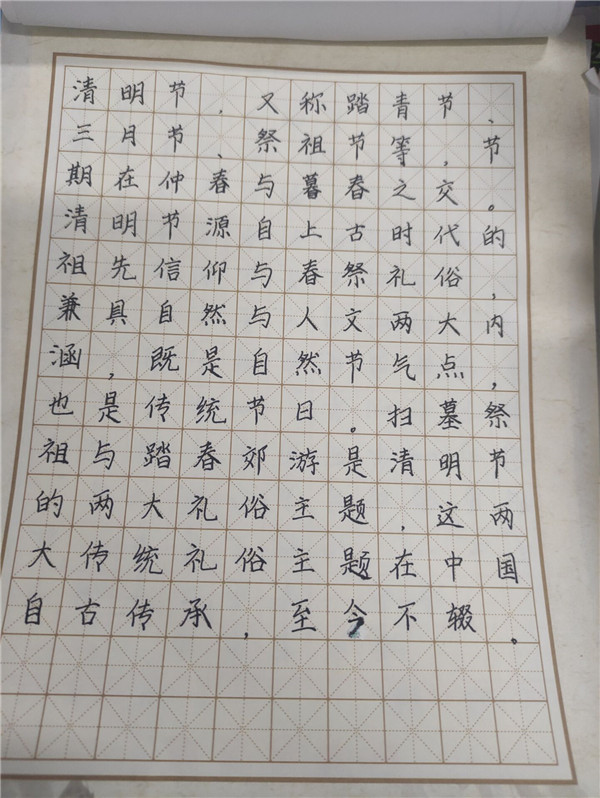 清明节，又称踏青节、
三月节、祭祖节等，节
期在仲春与暮春之交。
清明节源自上古时代的
祖先信仰与春祭礼俗，
兼具自然与人文两大内
涵，既是自然节气点，
也是传统节日。扫墓祭
祖与踏春郊游是清明节
的两大礼俗主题，这两
大传统礼俗主题在中国
自古传承，至今不辍。